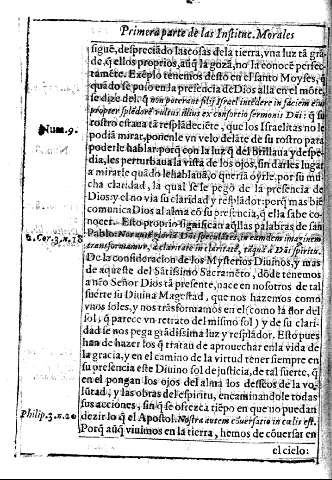 Primera parte de las Institut. Morales
sigue, despreciãdo las cosas de la tierra, vna luz tã grã-
de, q̃ ellos proprios, aũq̃ la gozã, no la conocẽ perfec-
tamẽte. Exẽplo tenemos desto en el santo Moyses, q̃
quãdo se puso en la presencia de Dios alla en el mõte,
se dize del, q̃ non poterant filij Israel intẽdere in faciem eius
propter splẽdorẽ vultus illius ex consortio sermonis Dñi: q̃ su
rostro estaua tã resplãdeciẽte, que los Israelitas no le
podiã mirar, ponenle vn velo delãte de su rostro para
Num. 9.
poderle hablar: porq̃ con la luz q̃ del brillaua y despe-
dia, les perturbaua la vista de los ojos, sin darles lugar
a mirarle quãdo le hablauã, o queriã oyrle, por su mu-
cha claridad, la qual se le pegò de la presencia de
Dios: y el no via su claridad y resplãdor: porq̃ mas biẽ
comunica Dios al alma cõ su presẽcia, q̃ ella sabe co-
nocer. Esto proprio significan aq̃llas palabras de san
2. Cor. 3. n. 18
Pablo: Nos aut̃ gloriã Dñi speculãtes, in eamdem imaginem
transformamur, a claritate in claritatẽ, tãquã à Dñi spiritu.
De la consideracion de los Mysterios Diuinos, y mas
de aqueste del Sãtissimo Sacramẽto, dõde tenemos
a nr̃o Señor Dios tã presente, nace en nosotros de tal
suerte su Diuina Magestad, que nos hazemos como
vnos soles, y nos trãsformamos en el (como la flor del
sol, q̃ parece vn retrato del mismo sol) y de su clari-
dad se nos pega grãdissima luz y resplãdor. Esto pues
han de hazer los q̃ tratan de aprouechar en la vida de
la gracia, y en el camino de la virtud tener siempre en
su presencia este Diuino sol de justicia, de tal suerte, q̃
en el pongan los ojos del alma los desseos de la vo-
lũtad, y las obras del espiritu, encaminandole todas
sus acciones, sin q̃ se ofrezca tiẽpo en que no puedan
Philip. 3. n. 20
dezir lo q̃ el Apostol: Nostra autem cõuersatio in cælis est.
Porq̃ aũq̃ viuimos en la tierra, hemos de cõuersar en
el cielo: